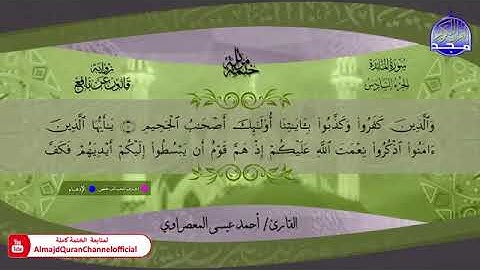 سورة المائدة
الجزء السادس
ختمة
برواية
قالون عن نافع
وَٱلَّذِينَ كَفَرُواْ وَكَذَّبُواْ بِـَٔايَٰتِنَآ أُوْلَٰٓئِكَ أَصْحَٰبُ ٱلْجَحِيمِ يَٰٓأَيُّهَا ٱلَّذِينَ
ءَامَنُواْ ٱذْكُرُواْ نِعْمَتَ ٱللَّهِ عَلَيْكُمْ إِذْ هَمَّ قَوْمٌ أَن يَبْسُطُوٓاْ إِلَيْكُمْ أَيْدِيَهُمْ فَكَفَّ
الإدغام
القارئ/ أحمد عيسى المعصراوي
لمتابعة الختمة كاملة
AlmajdQuranChannelofficial
You Tube